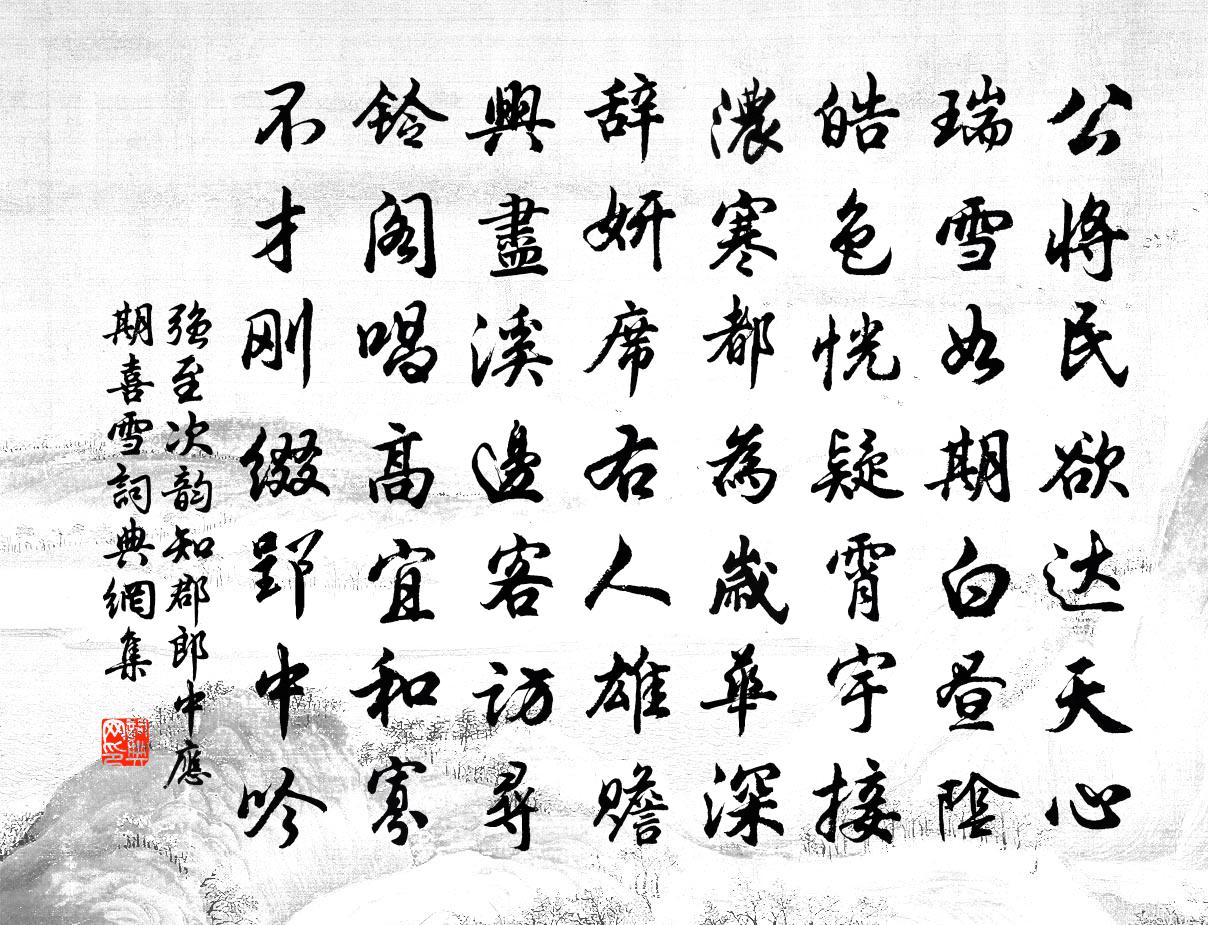 公將民欲达天心
瑞雪如期白昼陰
皓色恍疑霄宇接
濃寒都為歲華深
辞妍席右人雄贍
興盡溪邊客訪尋
鈴阁唱高宜和寡
不才刚缀郢中吟
强至次韵知郡郎中應
期喜雪詞典網集